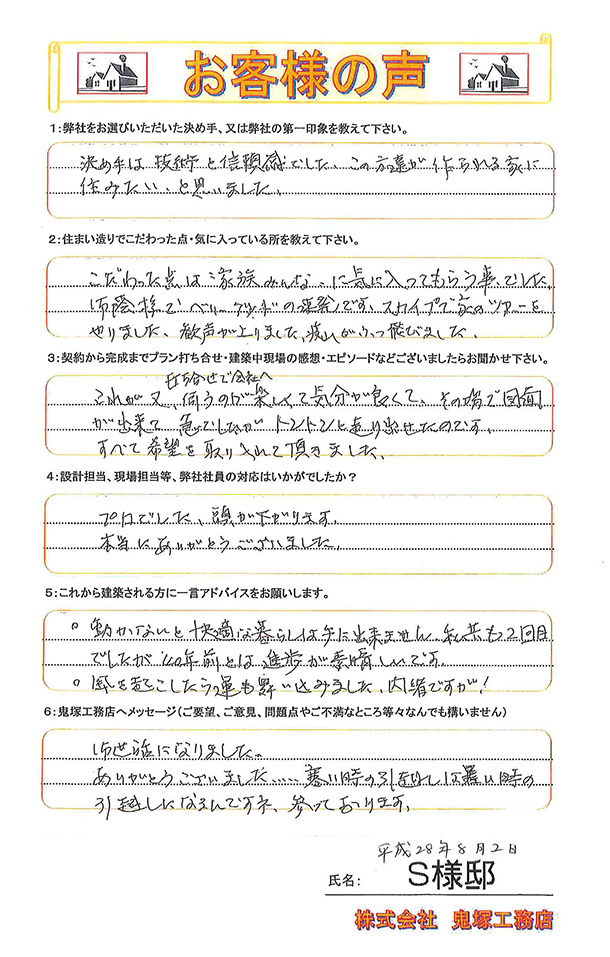 お客様の声
1:弊社をお選びいただいた決め手、又は弊社の第一印象を教えて下さい。
決め手は技術と信頼感でした。この方達が作られる家に
住みたい、と思いました。
2:住まい造りでこだわった点・気に入っている所を教えて下さい。
こだわった点は家族みんなに気に入ってもらう事でした。
御陰様でベリーグッドの連発です。スカイプで家のツアーを
やりました、歓声が上りました、疲れがふっ飛びました。
3:契約から完成までプラン打ち合せ・建築中現場の感想・エピソードなどございましたらお聞かせ下さい。
打ち合せで会社へ
これが又、伺うのが楽しくて気分が良くて、その場で図面
が出来て 急でしたがトントンと走り出せたのです。
すべて希望を取り入れて頂きました。
4:設計担当、現場担当等、弊社社員の対応はいかがでしたか?
プロでした、頭が下がります。
本当にありがとうございました。
5:これから建築される方に一言アドバイスをお願いします。
○ 動かないと快適な暮らしは手に出来ません。私共も2回目
でしたが 40年前とは進歩が素晴しいです。
○ 風を起こしたら運も舞い込みました、内緒ですが!
6:鬼塚工務店へメッセージ(ご要望、ご意見、問題点やご不満なところ等々なんでも構いません)
御世話になりました。
ありがとうございました..... 寒い時の引越しは暑い時の
引越しになるんですネ、参っております。
平成28年8月2日
氏名: S様邸
株式会社 鬼塚工務店